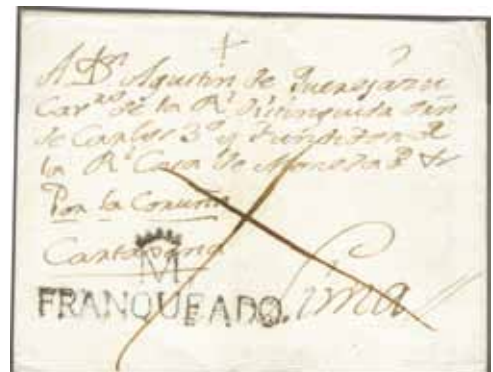 A Dn Agustin de Querejazu
Cavro de la Rl Distinguida
de Carlos 3º y
la Rl Casa de Moneda &
Por la Coruña
Cartagena
M
FRANQUEADO. Lima